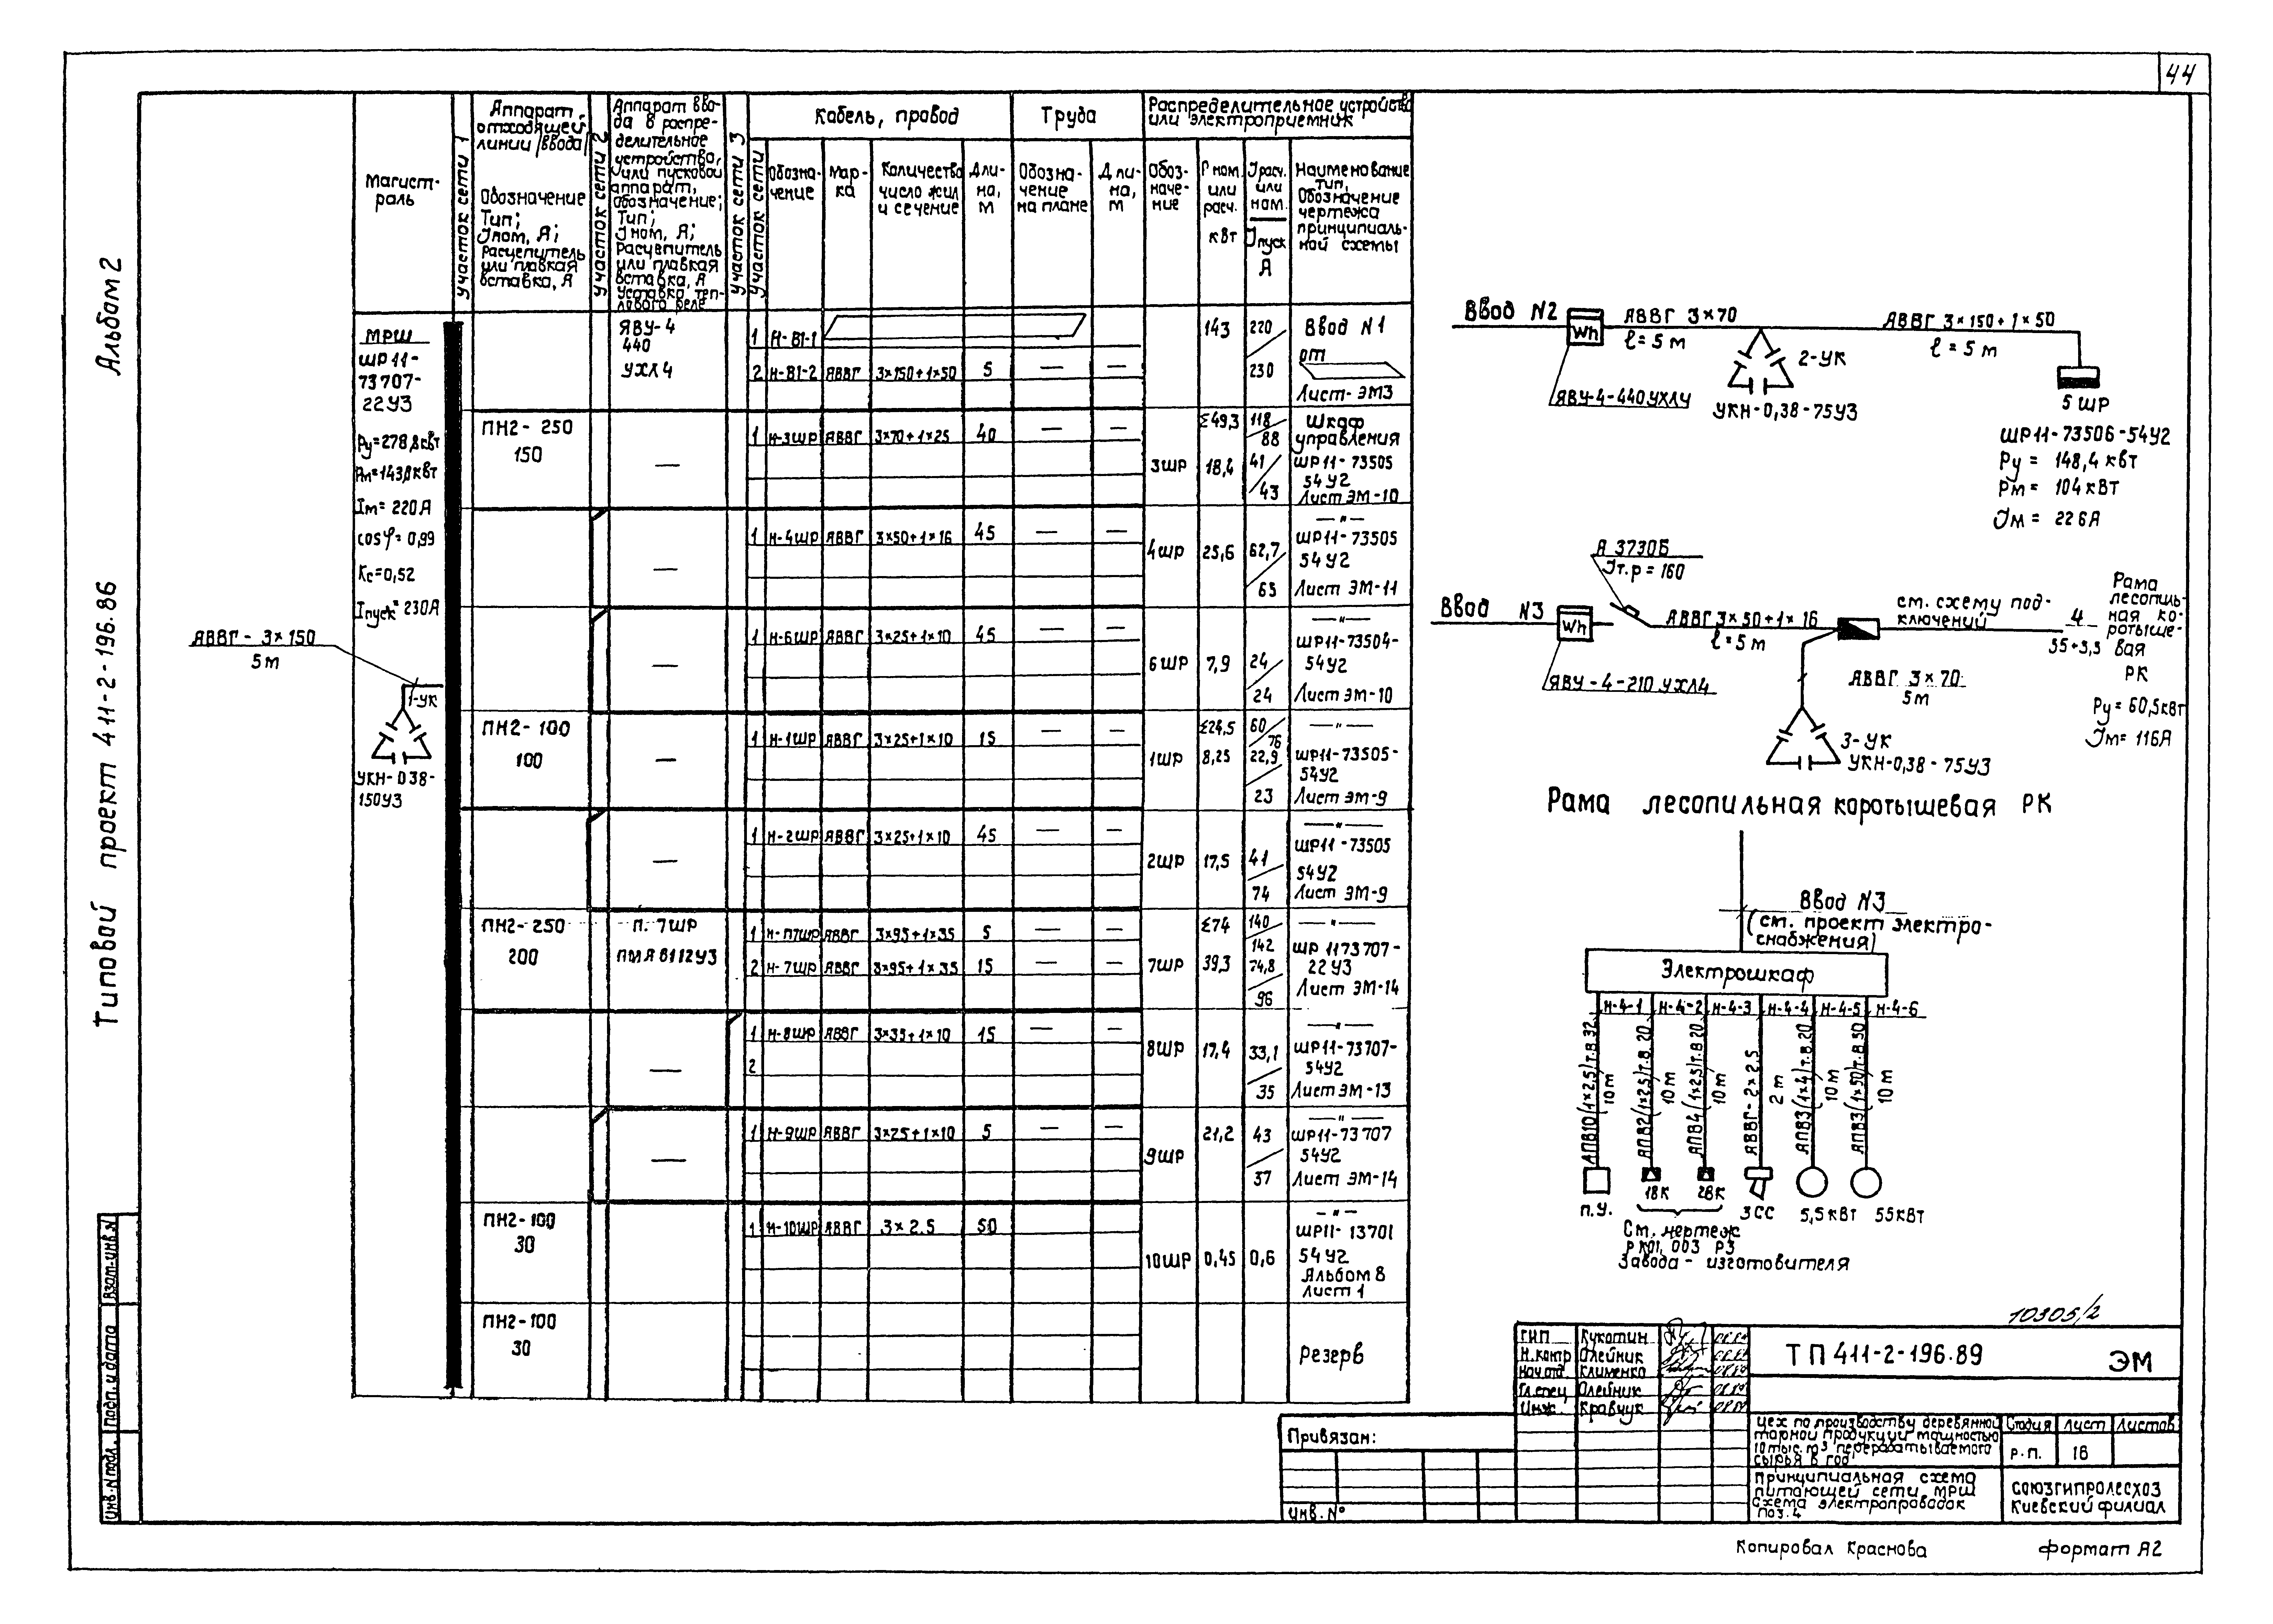 44
Альбом 2
Типовой проект 411-2-196.86
Магист-
раль
участок сети 1
Аппарат
отходящей
линии (ввода)
Обозначение
Тип;
Iном, А;
расцепитель
или плавкая
вставка, А
участок сети 2
Аппарат вво-
да в распре-
делительное
устройство,
или пусковой
аппарат,
обозначение;
Тип;
Iном, А;
расцепитель
или плавкая
вставка, А
уставка теп-
лового реле
участок сети 3
участок сети
Кабель, провод
Обозна-
чение
Мар-
ка
Количество
число жил
и сечение
Дли-
на,
м
Труба
Обозна-
чение
на плане
Дли-
на,
м
Распределительное устройство
или электроприемник
Обоз-
наче-
ние
Pном.
или
расч.
кВт
Iрасч.
или
ном.
Iпуск
А
Наименование
тип,
Обозначение
чертежа
принципиаль-
ной схемы
МРШ
ШР11-
73707-
22У3
Pу=278,8кВт
Pм=143,8кВт
Iм= 220А
cosφ=0,99
Kс=0,52
Iпуск=230А
АВВГ - 3×150
5м
1-УК
УКН-0,38-
150У3
ЯВУ-4
440
УХЛ4
1 Н-В1-1
2 Н-В1-2 АВВГ 3×150+1×50 5 — —
143 220 230
Ввод N1
от
Лист-ЭМ3
ПН2-250
150
—
1 Н-3ШР АВВГ 3×70+1×25 40 — —
3ШР
Σ49,3 118 88
18,4 41 43
Шкаф
управления
ШР11-73505
54У2
Лист ЭМ-10
—
1 Н-4ШР АВВГ 3×50+1×16 45 — —
4ШР 25,6 62,7 65
—"—
ШР11-73505
54У2
Лист ЭМ-11
—
1 Н-6ШР АВВГ 3×25+1×10 45 — —
6ШР 7,9 24 24
—"—
ШР11-73504-
54У2
Лист ЭМ-10
ПН2-100
100
—
1 Н-1ШР АВВГ 3×25+1×10 15 — —
1ШР
Σ24,5 60 76
8,25 22,9 23
—"—
ШР11-73505-
54У2
Лист ЭМ-9
—
1 Н-2ШР АВВГ 3×25+1×10 45 — —
2ШР 17,5 41 74
—"—
ШР11-73505
54У2
Лист ЭМ-9
ПН2-250
200
П. 7ШР
ПМА6112У3
1 Н-П7ШР АВВГ 3×95+1×35 5 — —
2 Н-7ШР АВВГ 3×95+1×35 15 — —
7ШР
Σ74 140 142
39,3 74,8 96
—"—
ШР 1173707-
22У3
Лист ЭМ-14
—
1 Н-8ШР АВВГ 3×35+1×10 15 — —
2
8ШР 17,4 33,1 35
—"—
ШР11-73707-
54У2
Лист ЭМ-13
—
1 Н-9ШР АВВГ 3×25+1×10 5 — —
9ШР 21,2 43 37
—"—
ШР11-73707
54У2
Лист ЭМ-14
ПН2-100
30
1 Н-10ШР АВВГ 3×2.5 50
10ШР 0,45 0,6
—"—
ШР11-13701
54У2
Альбом 8
Лист 1
ПН2-100
30
резерв
Ввод N2
Wh
ЯВУ-4-440УХЛ4
АВВГ 3×70
ℓ=5м
2-УК
УКН-0,38-75У3
АВВГ 3×150+1×50
ℓ=5м
5ШР
ШР11-73506-54У2
Pу= 148,4 кВт
Pм= 104кВт
Iм= 226А
Ввод N3
Wh
ЯВУ-4-210 УХЛ4
А 3730Б
Iт.р=160
АВВГ 3×50+1×16
ℓ=5м
см. схему под-
ключений
4
55+5,5
Рама
лесопиль-
ная ко-
ротыше-
вая
РК
Pу=60,5кВт
Iм=116А
АВВГ 3×70
5м
3-УК
УКН-0,38-75У3
Рама лесопильная коротышевая РК
Ввод N3
(см. проект электро-
снабжения)
Электрошкаф
Н-4-1 Н-4-2 Н-4-3 Н-4-4 Н-4-5 Н-4-6
АПВ10(1×2,5)т.в 32
10м
АПВ2(1×2,5)т.в. 20
10м
АПВ4(1×2,5)т.в 20
10м
АВВГ-2×2.5
2м
АПВ3(1×4)т.в.20
10м
АПВ3(1×50)т.в 50
10м
П.У. 1ВК 2ВК 3СС 5,5кВт 55кВт
См. чертеж
РК01.003 Р3
Завода-изготовителя
10305/2
ГИП Кукотин
Н.контр Олейник
Нач.отд. Клименко
Гл.спец Олейник
Инж. Кравчук
ТП 411-2-196.89 ЭМ
Цех по производству деревянной
тарной продукции мощностью
10тыс.м³ перерабатываемого
сырья в год
Стадия Лист Листов
Р.П. 18
Принципиальная схема
питающей сети МРШ
Схема электропроводок
Поз.4
СОЮЗГИПРОЛЕСХОЗ
Киевский филиал
Привязан:
Инв.№
Инв.N подл. Подп. и дата Взам.инв.N
Копировал Краснова
Формат А2